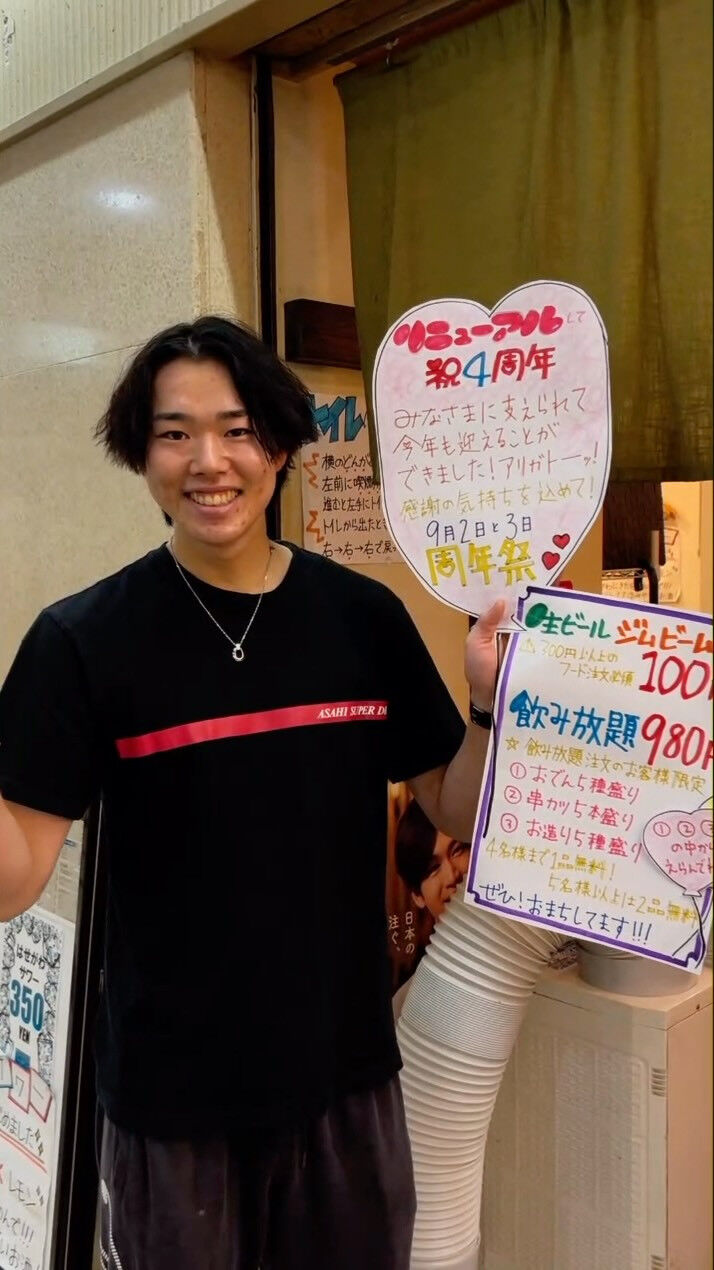 リニューアルして
祝4周年
みなさまに支えられて
今年も迎えることが
できました!アリガトーッ!
感謝の気持ちを込めて!
9月2日と3日
周年祭
生ビール ジムビーム
300円以上の
フード注文必須
100
飲み放題 980
☆飲み放題注文のお客様限定
① おでん5種盛り
② 串カツ5本盛り
③ お造り5種盛り
① ②
の中から
えらんでね
4名様まで1品無料!
5名様以上は2品無料
ぜひ!おまちしてます!!!
トイレ
横のどんが
左前に喫煙
進むと左手にトイ
トイレから出たとき
右→右→右で戻
ASAHI SUPER D
日本の
注ぐ、
はせがわ
サワー
350
YEN
めました
レモン